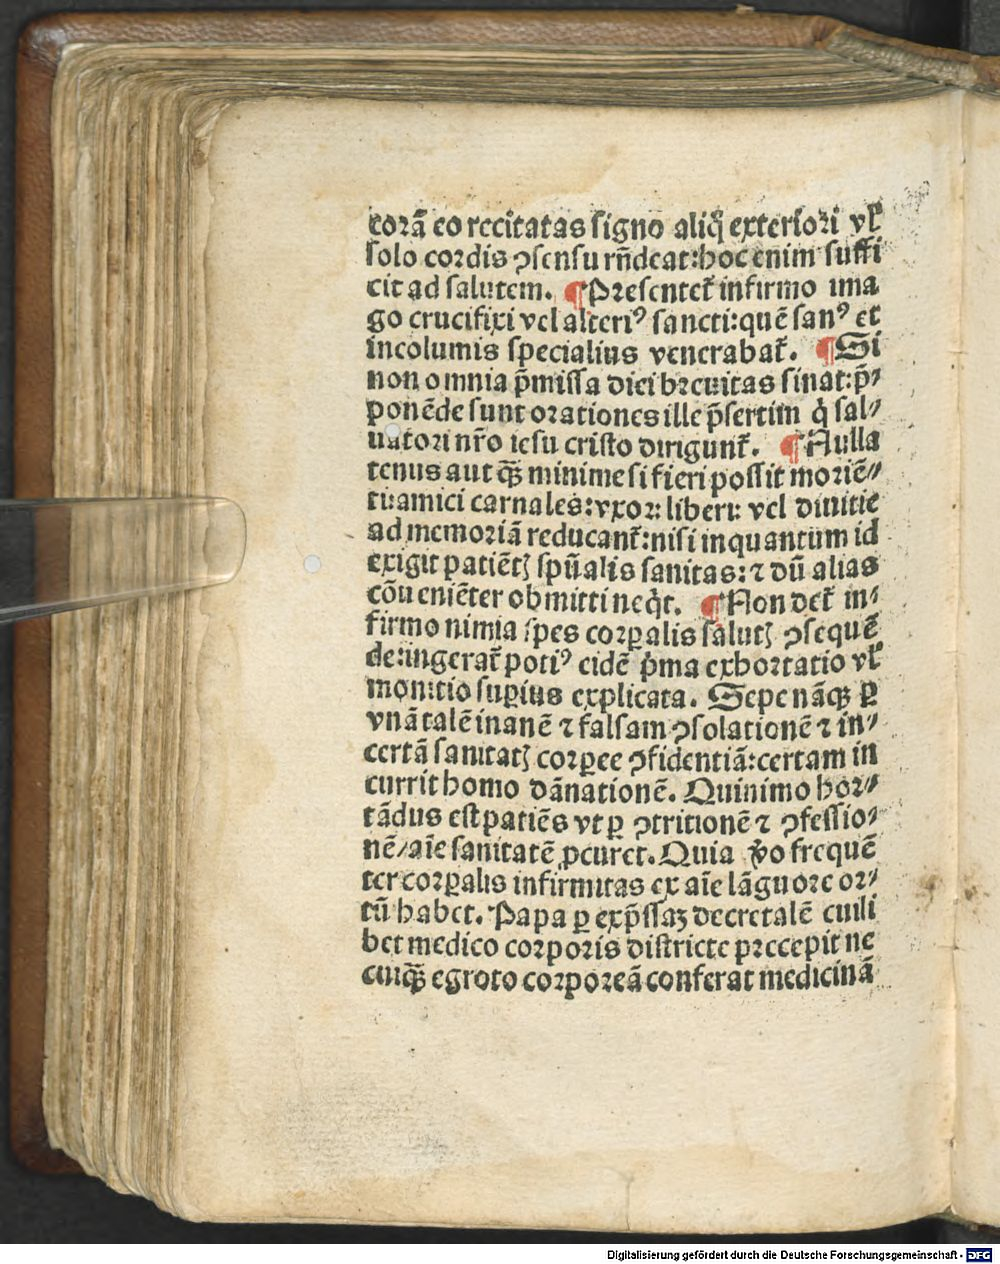 corã eo recitatas signo aliq̃ exteriori vl̛
solo cordis ꝯsensu rñdeat:hoc enim suffi
cit ad salutem. ¶Presentet᷑ infirmo ima
go crucifixi vel alteriꝰ sancti:quẽ sanꝰ et
incolumis specialius venerabat᷑. ¶Si
non omnia p̃missa dici breuitas sinat:p̃⸗
ponẽde sunt orationes ille p̃sertim q̇ sal⸗
uatori nr̃o iesu cristo dirigunt᷑. ¶Nulla
tenus aut q̃ꝫ minime si fieri possit moriẽ⸗
ti:amici carnales:vxor: liberi: vel diuitie
ad memoriã reducant᷑:nisi inquantum id
exigit patiẽtꝭ spũalis sanitas: ⁊ dũ alias
cõueniẽter obmitti neq̇t. ¶Non det᷑ in⸗
firmo nimia spes corꝑalis salutꝭ ꝯsequẽ
de:ingerat᷑ potiꝰ eidẽ p̀ma exhortatio vl̛
monitio suꝑius explicata. Sepe nãqꝫ ꝑ
vnã talẽ inanẽ ⁊ falsam ꝯsolationẽ ⁊ in⸗
certã sanitatꝭ corꝑee ꝯfidentiã:certam in
currit homo dãnationẽ. Quinimo hor⸗
tãdus est patiẽs vt ꝑ ꝯtritionẽ ⁊ ꝯfessio⸗
nẽ/aĩe sanitatẽ ꝓcuret. Quia v̊o frequẽ
ter corꝑalis infirmitas ex aĩe lãguore or⸗
tũ habet. Papa ꝑ exp̃ssaꝫ decretalẽ cuili
bet medico corporis districte precepit ne
cuiq̃ꝫ egroto corporeã conferat medicinã
Digitalisierung gefördert durch die Deutsche Forschungsgemeinschaft - DFG